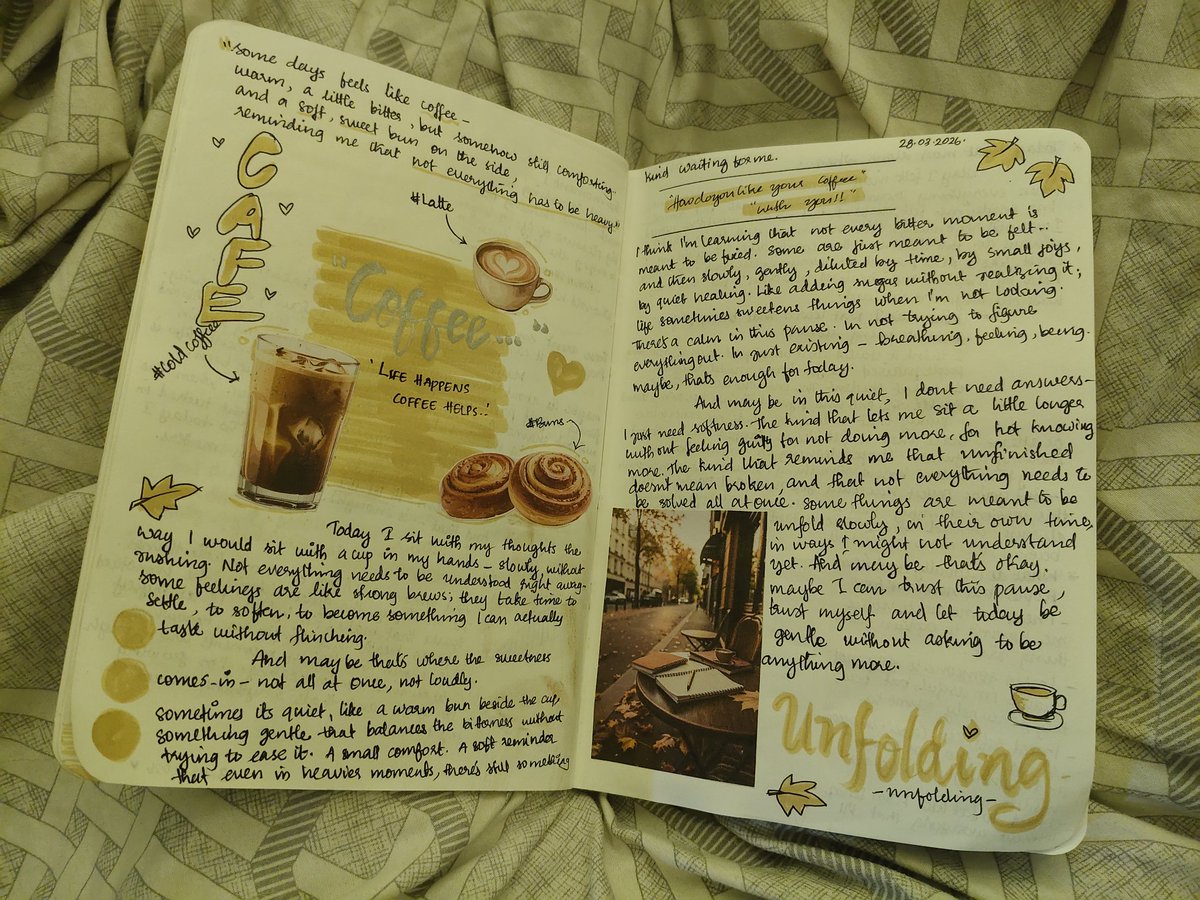 "some days feels like coffee -
warm, a little bitter, but somehow still comforting..
and a soft, sweet bun on the side,
reminding me that not everything has to be heavy."
CAFE
#Latte
"Coffee..."
'LIFE HAPPENS
COFFEE HELPS..'
#Cold Coffee
#Buns
Today I sit with my thoughts the
way I would sit with a cup in my hands - slowly, without
rushing. Not everything needs to be understood right away-
some feelings are like strong brews; they take time to
settle, to soften, to become something I can actually
taste without flinching.
And maybe thats where the sweetness
comes-in - not all at once, not loudly.
sometimes its quiet, like a warm bun beside the cup
something gentle that balances the bitterness without
trying to ease it. A small comfort. A soft reminder
that even in heavies moments, there's still something
28.03.2026.
kind waiting for me.
"How do you like your coffee"
"with you!!"
I think I'm learning that not every bitter moment is
meant to be fixed. Some are just meant to be felt..
and then slowly, gently, diluted by time, by small joys,
by quiet healing. Like adding sugar without realizing it;
life sometimes sweetens things when I'm not looking.
There's a calm in this pause. In not trying to figure
everything out. In just existing - breathing, feeling, being.
maybe, thats enough for today.
And maybe in this quiet, I dont need answers-
I just need softness. The kind that lets me sit a little longer
without feeling guilty for not doing more, for not knowing
more. The kind that reminds me that unfinished
doesn't mean broken, and that not everything needs to
be solved all at once. some things are meant to be
unfold slowly, in their own time,
in ways I might not understand
yet. And maybe that's okay.
maybe I can trust this pause,
trust myself and let today be
gentle without asking to be
anything more.
Unfolding
-unfolding-